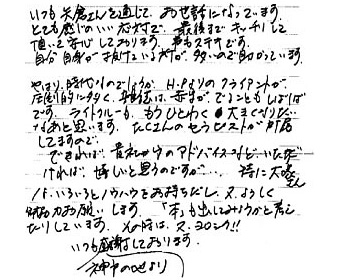 いつも矢倉さんを通じて、お世話になっています。
とても感じのいい応対で、最後までキッチリして
頂いて安心しております。声もステキです。
自分自身が抜けている所が多いので助かっています。
やはり、時代なのでしょうか、H.Pよりのクライアントが
圧倒的に多く、雑誌は赤字がでることもしばしば
です。ライトクルーも、もうひとわく大きくなりたい
なあと思います。たくさんのセラピストが所属
してますので。
できれば、貴社のアドバイスなどいただ
ければ、嬉しいと思うのですが、特に大
いろいろとノウハウをお持ちだし、又、よろしく
御協力お願いします。「本」も出してみようかと考え
たりしています。その時は、又、ヨロシク!!
いつも感謝しております。
神中の